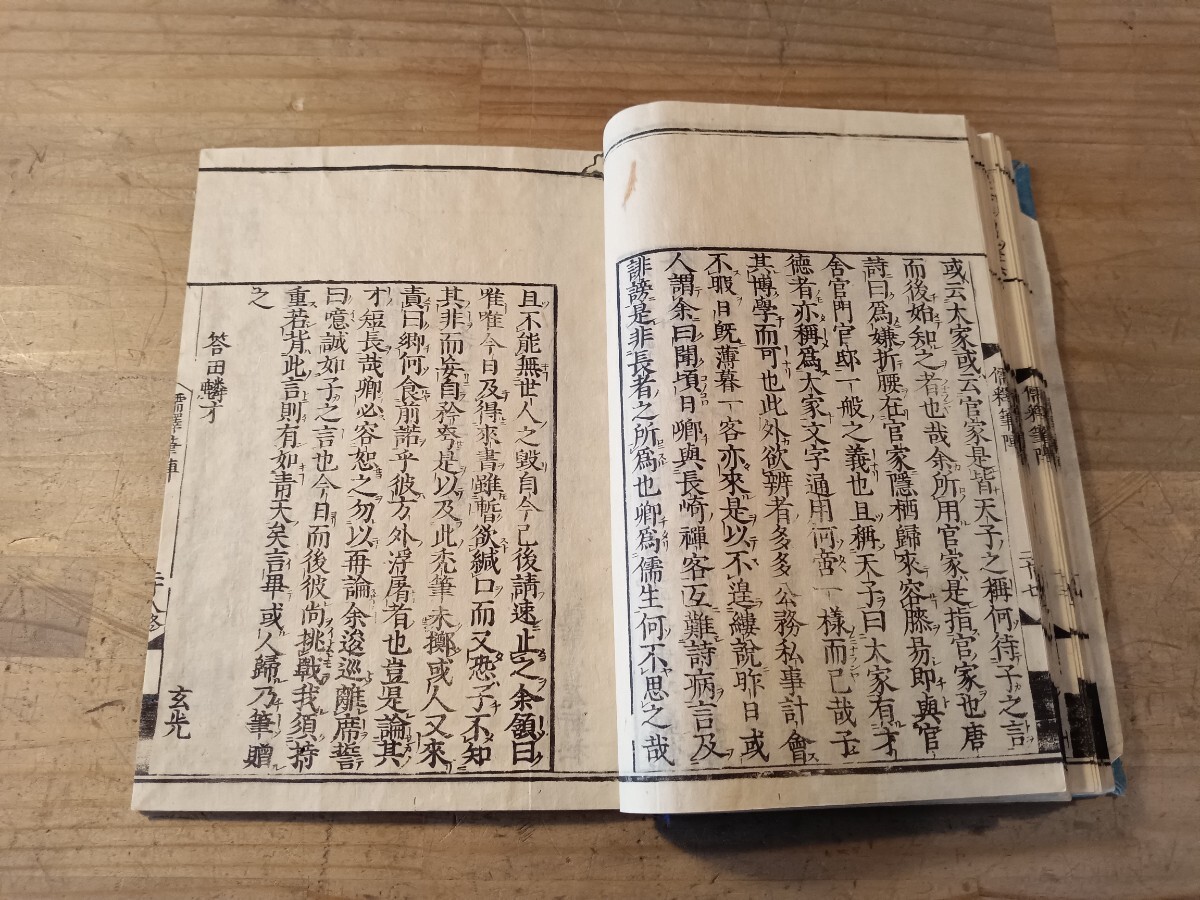 或云大家或云官家是皆天子之稱何待子之言
而後始知之者也哉余所用官家是指官家也唐
詩曰爲嫌折腰在官家隱栖歸來容膝易即與官
舍官門官邸一般之義也且稱天子曰大家有才
德者亦稱爲大家文字通用何啻一樣而已哉子
其博學而可也此外欲辨者多多公務私事計會
不暇日既薄暮一客亦來是以不遑縷說昨日或
人謂余曰聞頃日卿與長崎禪客互難詩病言及
誹謗是非長者之所爲也卿爲儒生何不思之哉
且不能無世人之毀自今已後請速止之余領曰
唯唯今日及得來書雖暫欲緘口而又恐子不知
其非而妄自矜夸是以及此禿筆未擲或人又來
責曰卿何食前諾乎彼方外浮屠者也豈是論其
才短長哉卿必容恕之勿以再論余逡巡離席誓
曰噫誠如子之言也今日而後彼尚挑戰我須持
重若背此言則有如青天矣言畢或人歸乃筆贈
之
答田麟才
玄光
儒釋筆陣
二十八終
儒釋筆陣
二十七
儒釋筆陣